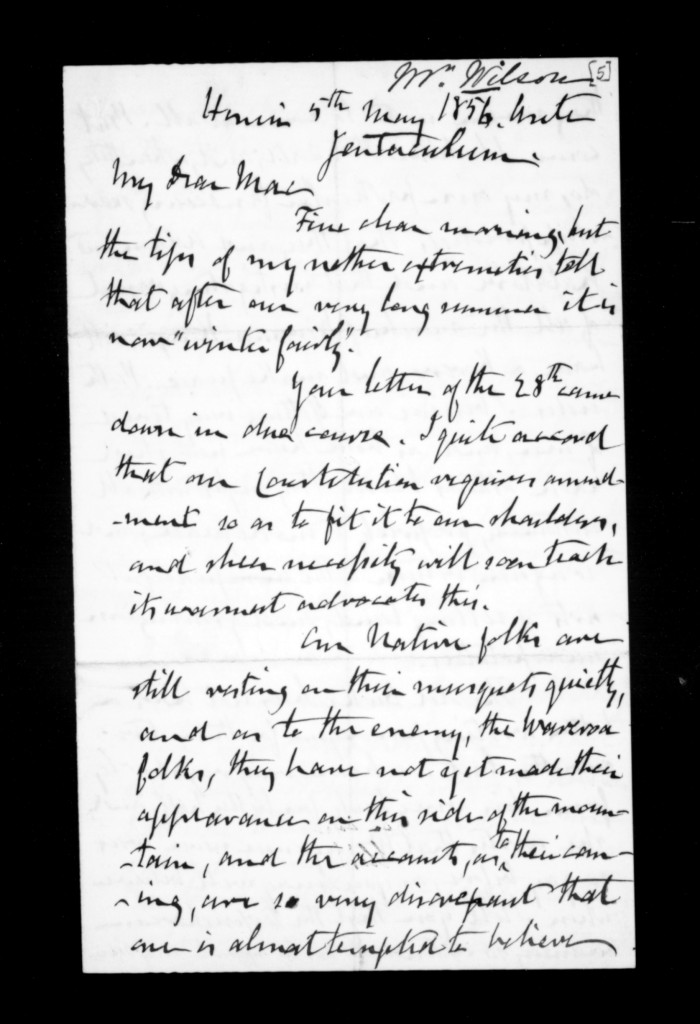 Mr. Wilson [5]
5th May 1856. Ante
Jentaculum.
My Dear Mac
Fine clear morning, but
the tips of my nether extremities tell
that after our very long summer it is
now "winter fairly".
Your letter of the 28th came
down in due course. I quite accord
that our Constitution requires amend-
-ment so as to fit it to our shoulders,
and sheer necessity will soon teach
its warmest advocates this.
Our Native folks are
still resting on their musquets quietly,
and as to the enemy, the Wairoa
folks, they have not yet made their
appearance on this side of the moun-
-tain, and the accounts, as to their com-
-ing, are so very discrepant that
one is almost tempted to believe